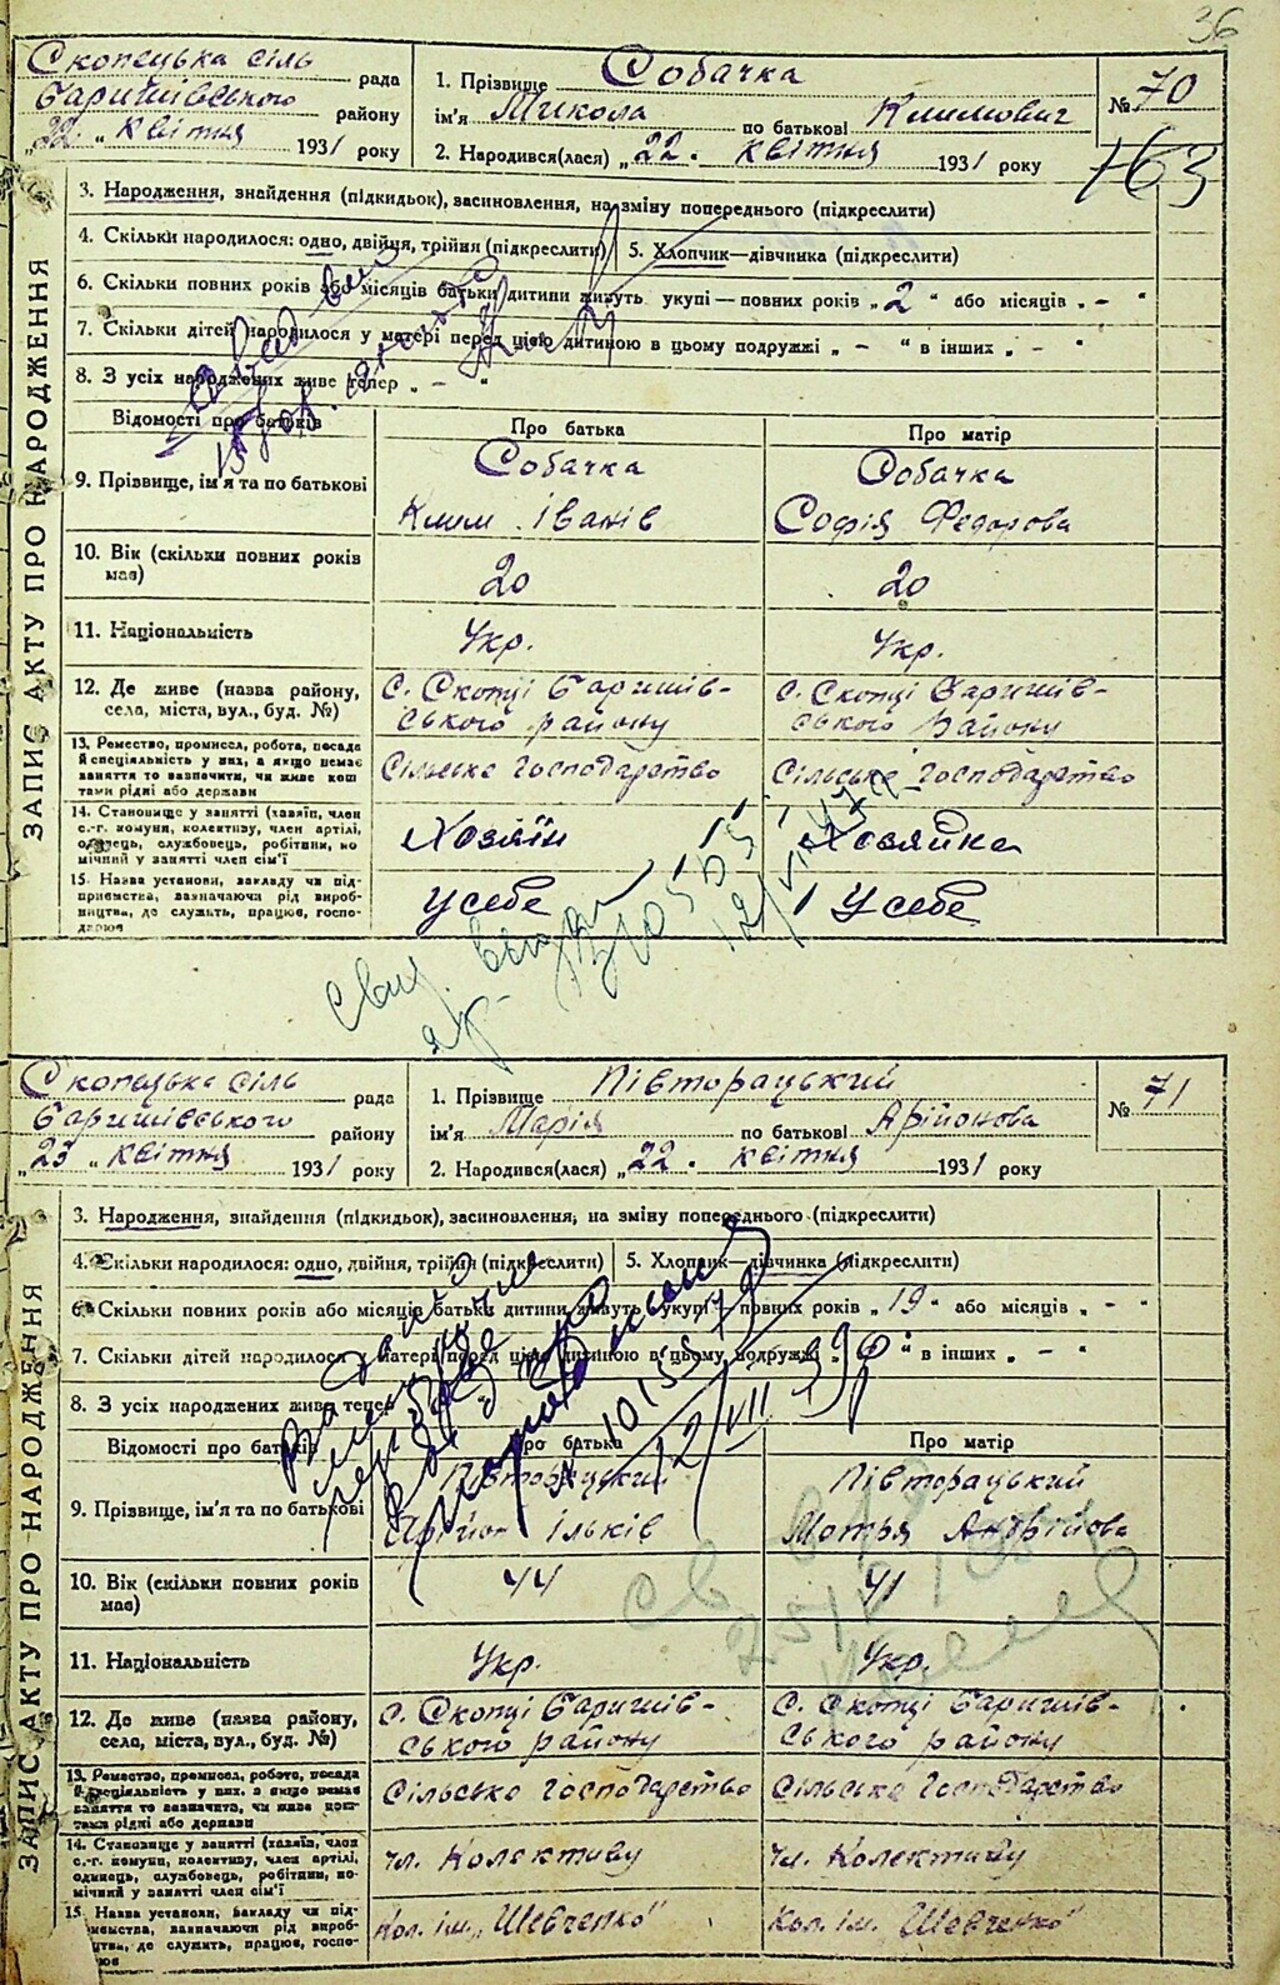 36
Скопецька сіль рада
Баришівського району
„22 „ квітня 1931 року
1. Прізвище Собачка
ім'я Микола по батькові Климович
2. Народився(лася) „22. квітня 1931 року
№ 70
163
ЗАПИС АКТУ ПРО НАРОДЖЕННЯ
3. Народження, знайдення (підкидьок), засиновлення, на зміну попереднього (підкреслити)
4. Скільки народилося: одно, двійня, трійня (підкреслити)
5. Хлопчик—дівчинка (підкреслити)
6. Скільки повних років або місяців батьки дитини живуть укупі — повних років „ 2 “ або місяців „ – “
7. Скільки дітей народилося у матері перед цією дитиною в цьому подружжі „ – “ в інших „ – “
8. З усіх народжених живе тепер „ – “
Відомості про батьків
Про батька
Про матір
9. Прізвище, ім'я та по батькові
Собачка
Клим Іванів
Собачка
Софія Федорова
10. Вік (скільки повних років має)
20
20
11. Національність
Укр.
Укр.
12. Де живе (назва району, села, міста, вул., буд. №)
с. Скопці Баришів-
ського району
с. Скопці Баришів-
ського Району
13. Ремество, промисел, робота, посада
й спеціальність у них, а якщо немає
заняття то зазначити, чи живе кош
тами рідні або держави
Сільське господарство
Сільське господарство
14. Становище у занятті (хазяїн, член
с.-г. комуни, колективу, член артілі,
одинець, службовець, робітник, по
мічний у занятті член сім'ї
Хозяїн
Хозяйка
15. Назва установи, закладу чи під-
приємства, зазначаючи рід вироб-
ництва, де служить, працює, госпо-
дарює
У себе
У себе
Скопецька сіль рада
Баришівського району
„23 „ квітня 1931 року
1. Прізвище Півторацький
ім'я Марія по батькові Арійонова
2. Народився(лася) „22. квітня 1931 року
№ 71
ЗАПИС АКТУ ПРО НАРОДЖЕННЯ
3. Народження, знайдення (підкидьок), засиновлення, на зміну попереднього (підкреслити)
4. Скільки народилося: одно, двійня, трійня (підкреслити)
5. Хлопчик—дівчинка (підкреслити)
6. Скільки повних років або місяців батьки дитини живуть укупі — повних років „ 19 “ або місяців „ – “
7. Скільки дітей народилося у матері перед цією дитиною в цьому подружжі “ в інших „ – “
8. З усіх народжених живе тепер
Відомості про батьків
Про батька
Про матір
9. Прізвище, ім'я та по батькові
Півторацький
Арійон Ільків
Півторацький
Мотря Андрійова
10. Вік (скільки повних років має)
44
41
11. Національність
Укр.
Укр.
12. Де живе (назва району, села, міста, вул., буд. №)
с. Скопці Баришів-
ського району
с. Скопці Баришів-
ського району
13. Ремество, промисел, робота, посада
й спеціальність у них, а якщо немає
заняття то зазначити, чи живе кош-
тами рідні або держави
Сільське господарство
Сільське господарство
14. Становище у занятті (хазяїн, член
с.-г. комуни, колективу, член артілі,
одинець, службовець, робітник, по-
мічний у занятті член сім'ї
чл. Колективу
чл. Колективу
15. Назва установи, закладу чи під-
приємства, зазначаючи рід вироб-
ництва, де служить, працює, госпо-
дарює
Кол. ім. „Шевченко"
Кол. ім. Шевченко"